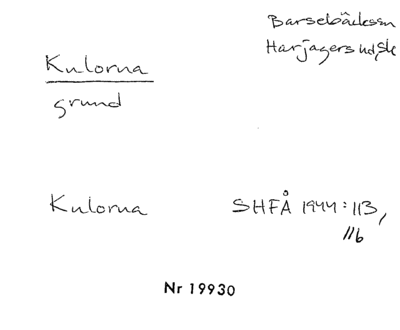 Barsebäcks sn
Harjagers hd, Sk
Kulorna
grund
Kulorna SHFÅ 1944:113,
116
Nr 19930